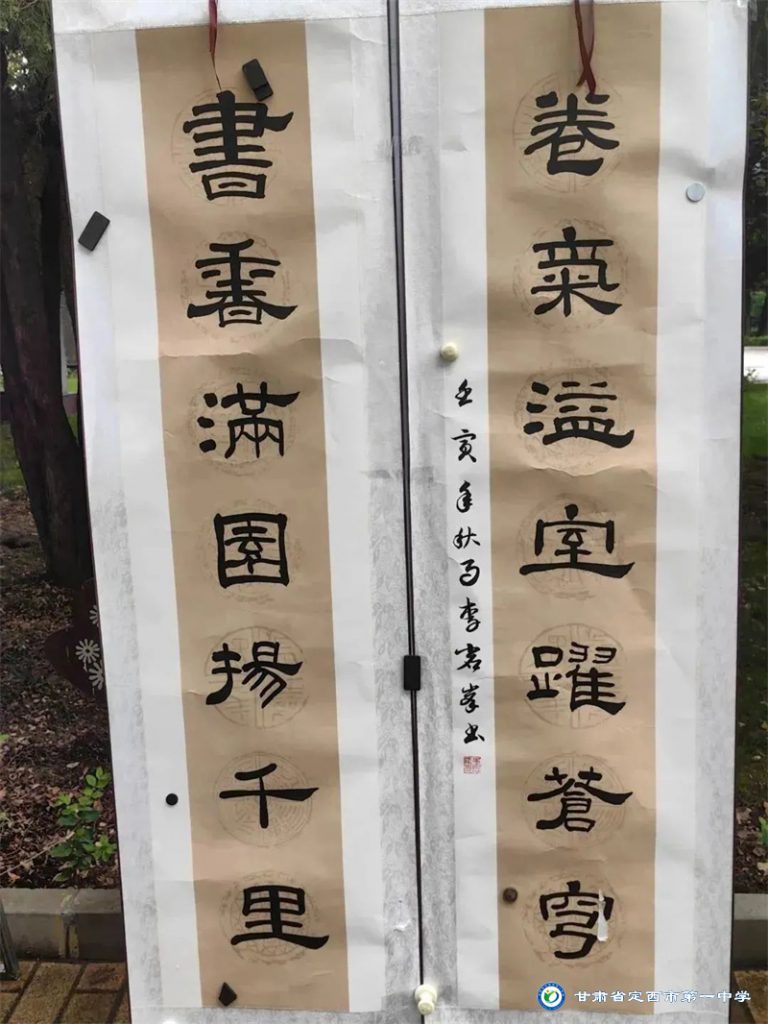 卷氣溢室躍蒼穹
壬寅年秋月李岩峯书
書香滿園揚千里
甘肃省定西市第一中学